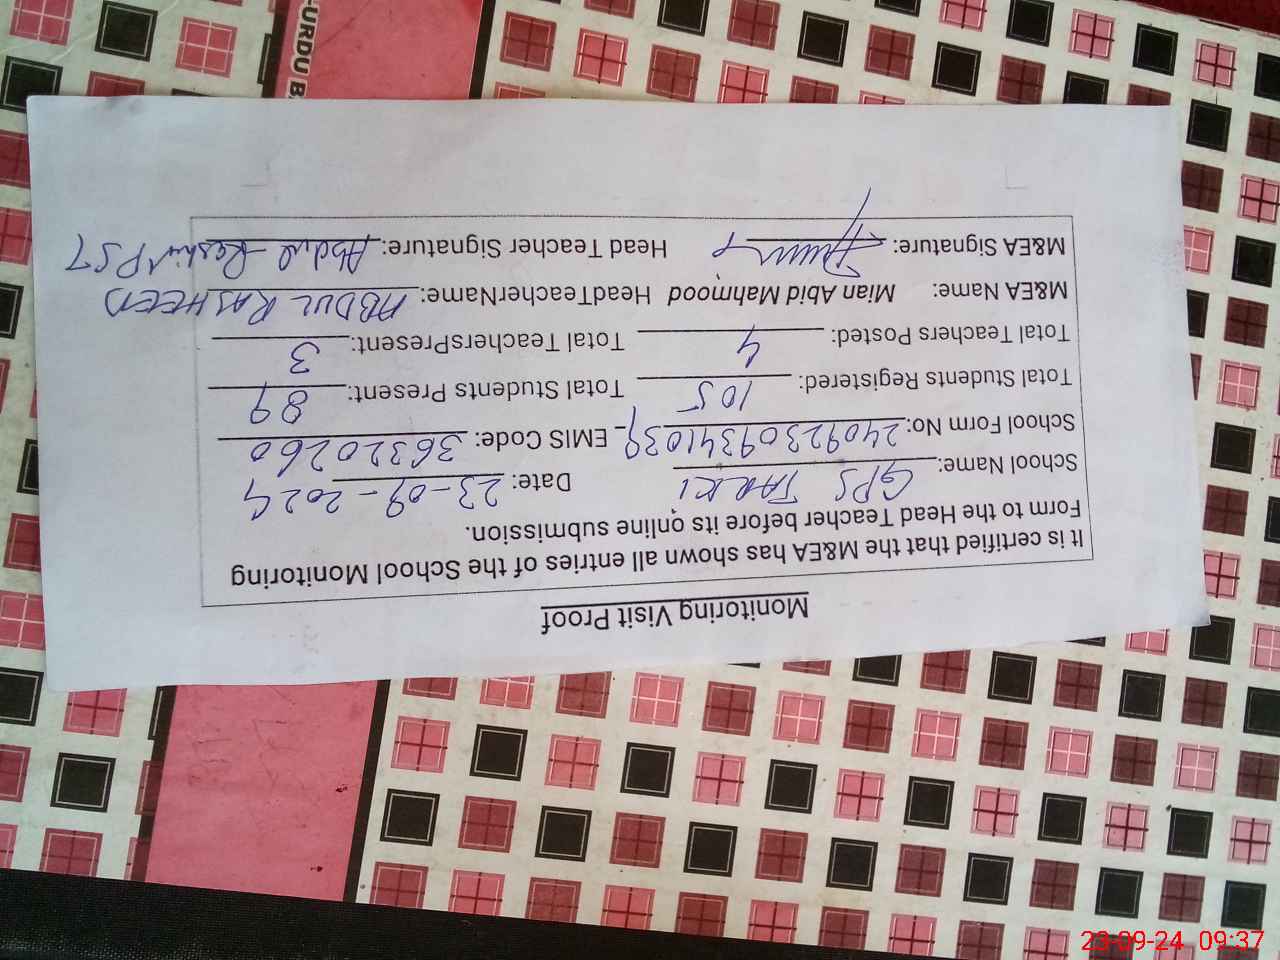 Monitoring Visit Proof
It is certified that the M&EA has shown all entries of the School Monitoring
Form to the Head Teacher before its online submission.
School Name: GPS TARKI Date: 23-09-2024
School Form No: 24092309341039 EMIS Code: 36320260
Total Students Registered: 105 Total Students Present: 89
Total Teachers Posted: 4 Total TeachersPresent: 3
M&EA Name: Mian Abid Mahmood HeadTeacherName: ABDUL RASHEED
M&EA Signature: Head Teacher Signature: Abdul Rashid PST
-URDU B
23-09-24 09:37